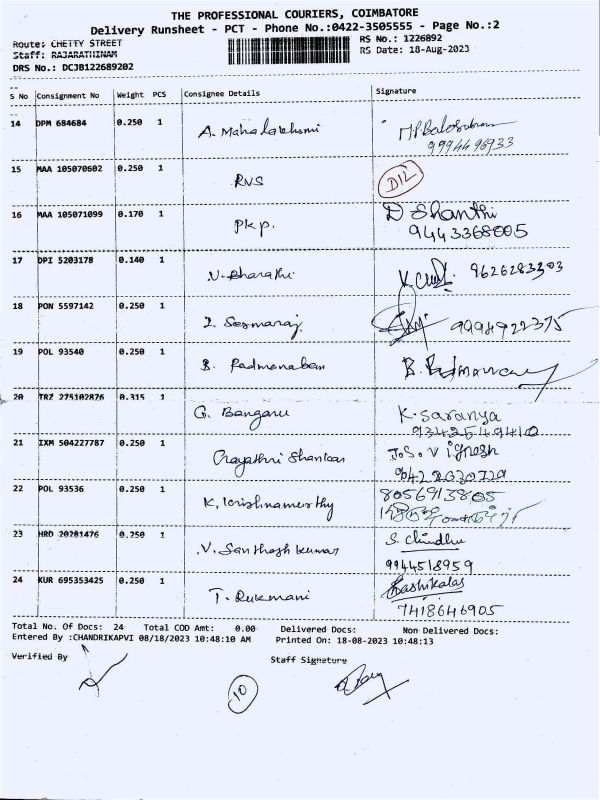 THE PROFESSIONAL COURIERS, COIMBATORE
Delivery Runsheet - PCT - Phone No.:0422-3505555 - Page No.:2
Route: CHETTY STREET
Staff: RAJARATHINAM
DRS No.: DCJB122689202
RS No.: 1226892
RS Date: 18-Aug-2023
S No Consignment No Weight PCS Consignee Details Signature
14 DPM 684684 0.250 1 A. Mahalakshmi M.P.Balasubram
9994496933
15 MAA 105070602 0.250 1 RVS DIL
16 MAA 105071099 0.170 1 PKP. D Shanthi
9443368005
17 DPI 5203178 0.140 1 V. Bharathi 9626283303
18 PON 5597142 0.250 1 9994922375
19 POL 93540 0.250 1 B. Padmanaban B. Padmanaban
20 TRZ 275102826 0.315 1 G. Bangaru K. Saranya
9342549410
21 IXM 504227787 0.250 1 Gayathri Shankar J.S. Vignesh
22 POL 93536 0.250 1 K. Krishnamurthy 8056913805
23 HRD 20281476 0.250 1 V. Santhosh kumar S. Chindhu
9944518959
24 KUR 695353425 0.250 1 T. Rukmani Sashikala
7418646905
Total No. Of Docs: 24 Total COD Amt: 0.00 Delivered Docs: Non Delivered Docs:
Entered By :CHANDRIKAPVI 08/18/2023 10:48:10 AM Printed On: 18-08-2023 10:48:13
Verified By Staff Signature
10